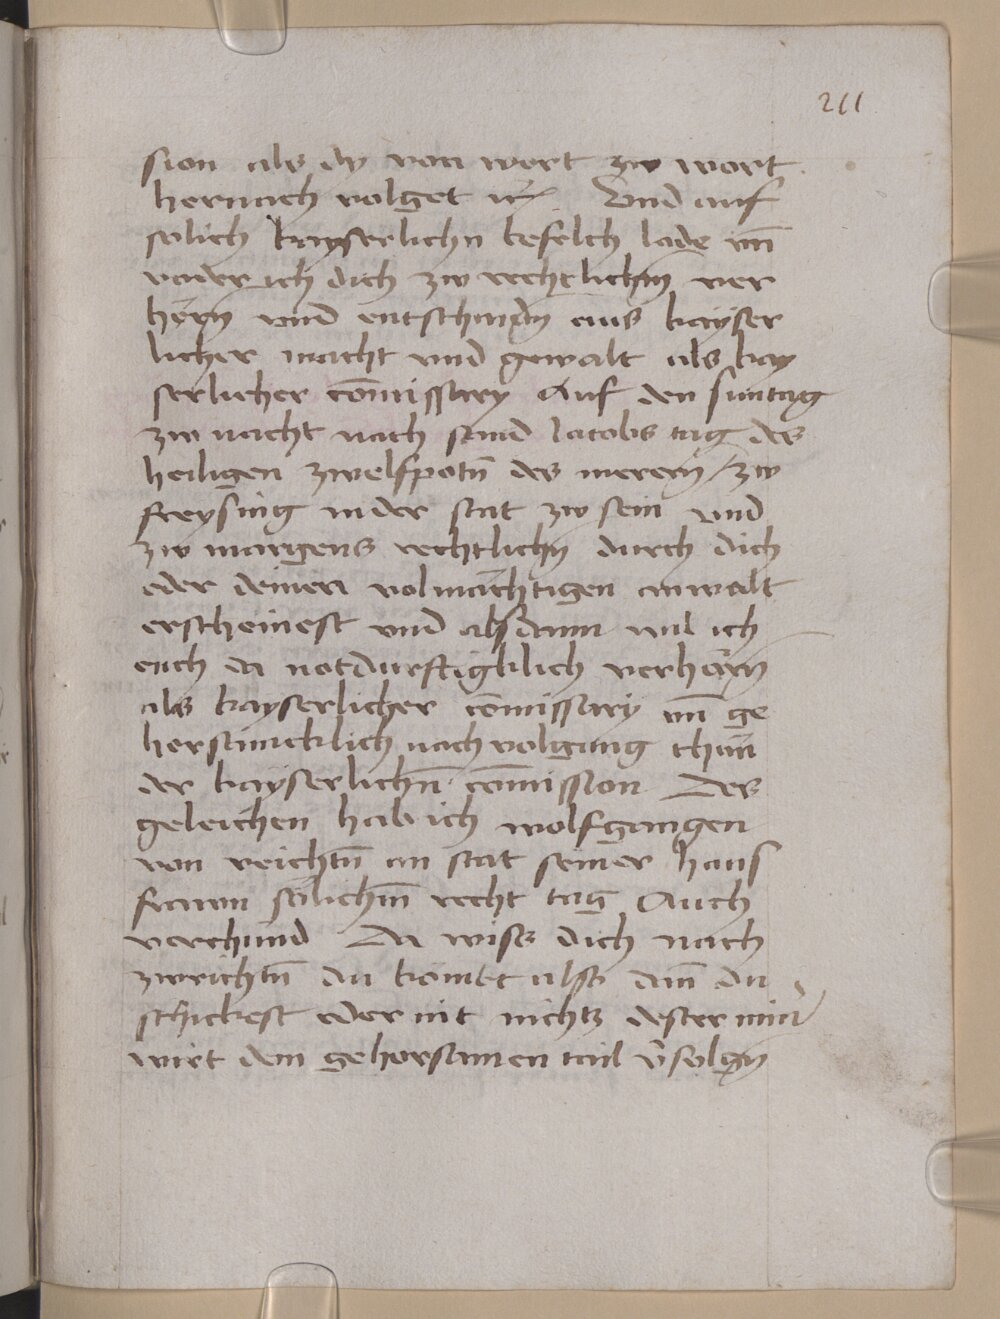 211
sion als dy von wort zw wort
hernach volget etc. Und auf
solich kayserlichn befelch lade vn̄
voder ich dich zw rechtlichn ver
hörn vnd entschaidn aus kayser
licher macht vnd gewalt als kay
serlicher cōmissary Auf den suntag
zw nacht nach sand Jacobs tag des
heiligen zwelfpotn̄ des merern / zw
freysing in der stat zw sein vnd
zw margens rechtlichn durch dich
oder deinen volmächtigen anwalt
erscheinest vnd alsdann wil ich
euch da notdurftigklich verhörn
als kayserlicher cōmissary vn̄ ge
horsamcklich nachvolgung thún
der kayserlichn̄ cōmission Des
geleichen hab ich wolfgangen
von weichtn̄ an stat seiner haus
frawn solichm̄ recht tag Auch
verchund Da wiss dich nach
zwrichtn̄ du kömbst alsso dan̄ du
schickest oder nit nichtz dester min̄
wirt dem gehorsamen tail v̄folgn